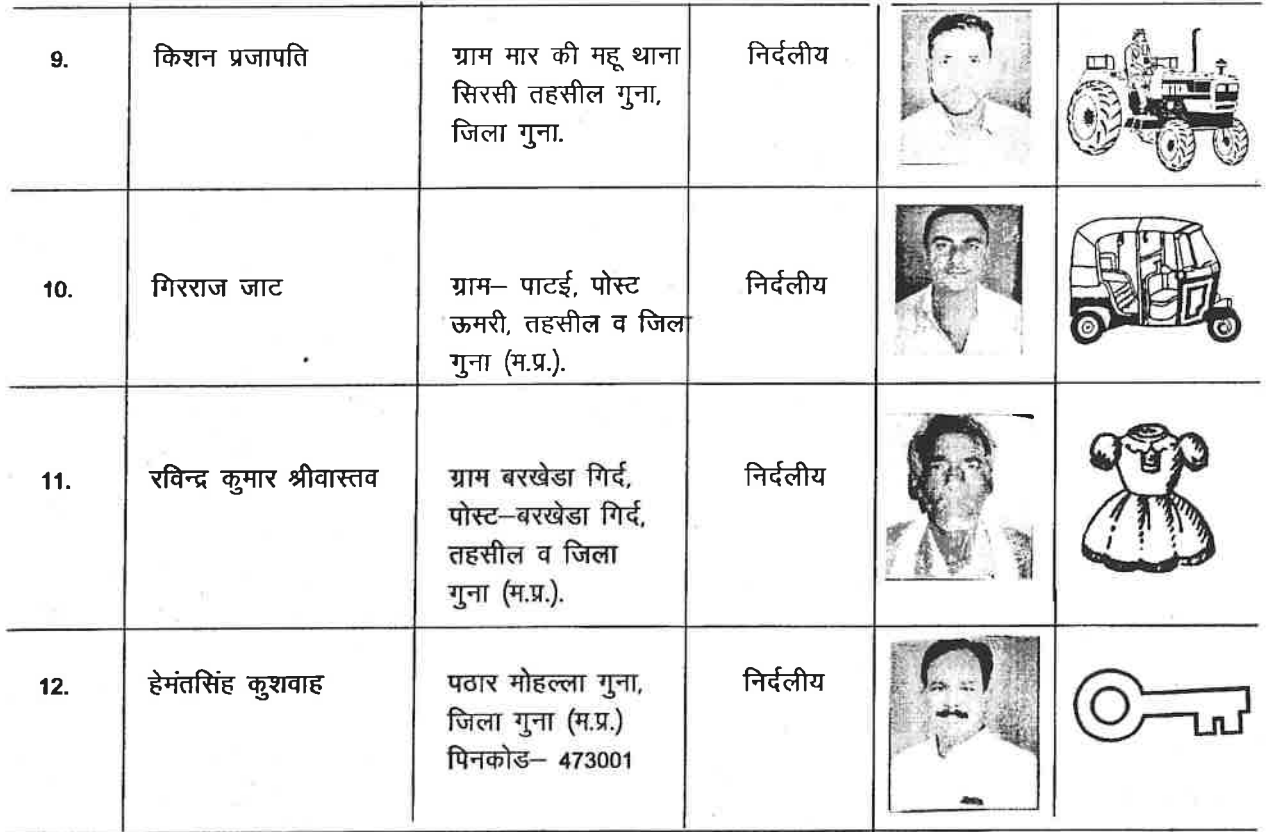 9.
किशन प्रजापति
ग्राम मार की महू थाना
सिरसी तहसील गुना,
जिला गुना.
निर्दलीय
10.
गिरराज जाट
ग्राम– पाटई, पोस्ट
ऊमरी, तहसील व जिला
गुना (म.प्र.).
निर्दलीय
11.
रविन्द्र कुमार श्रीवास्तव
ग्राम बरखेडा गिर्द,
पोस्ट–बरखेडा गिर्द,
तहसील व जिला
गुना (म.प्र.).
निर्दलीय
12.
हेमंतसिंह कुशवाह
पठार मोहल्ला गुना,
जिला गुना (म.प्र.)
पिनकोड– 473001
निर्दलीय